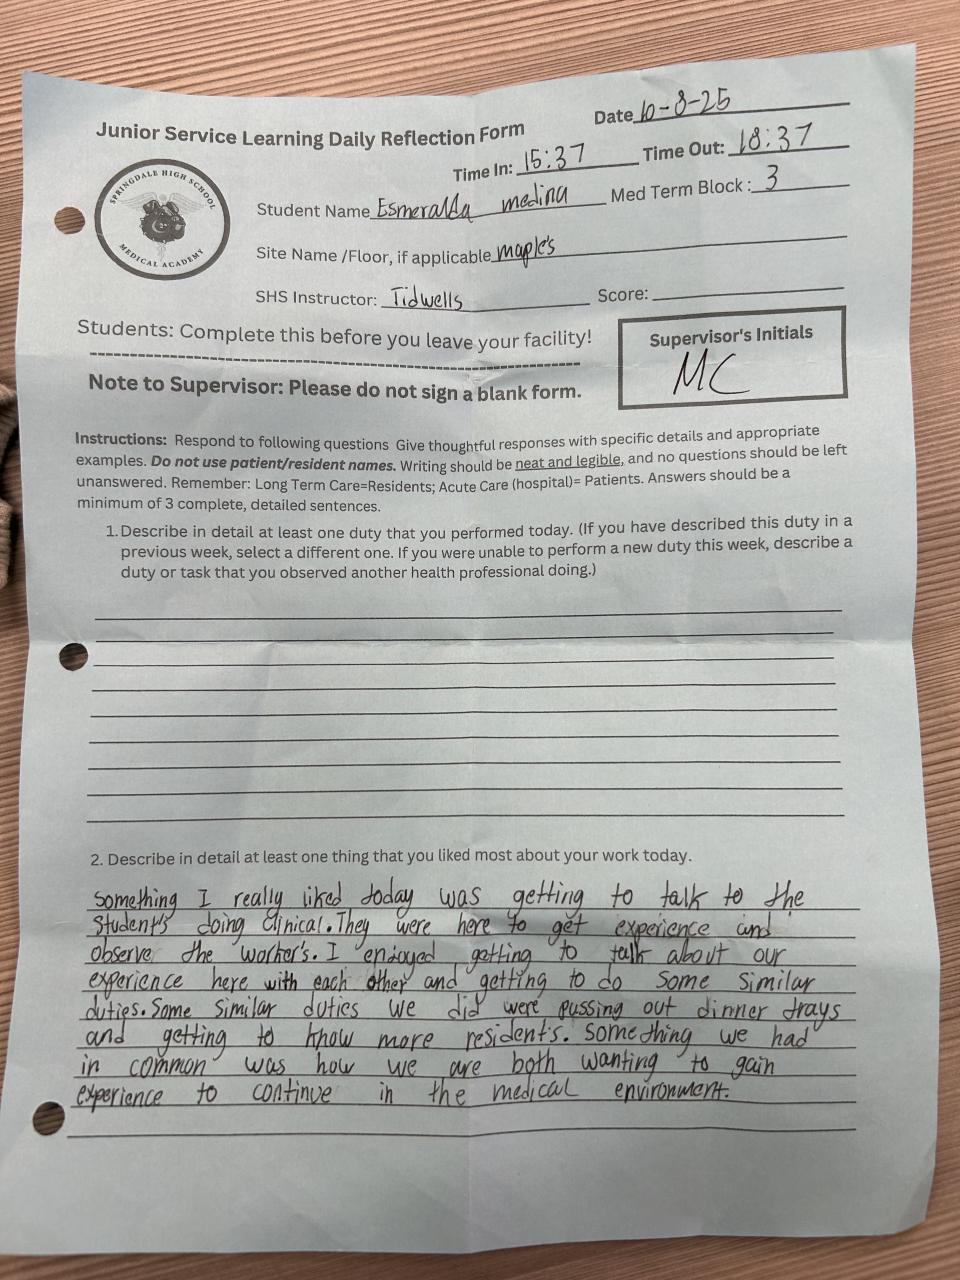 Date 10-8-25
Junior Service Learning Daily Reflection Form
Time In: 15:37 Time Out: 18:37
SPRINGDALE HIGH SCHOOL
MEDICAL ACADEMY
Student Name Esmeralda medina Med Term Block : 3
Site Name /Floor, if applicable maple's
SHS Instructor: Tidwells Score:
Students: Complete this before you leave your facility!
Supervisor's Initials
MC
Note to Supervisor: Please do not sign a blank form.
Instructions: Respond to following questions Give thoughtful responses with specific details and appropriate
examples. Do not use patient/resident names. Writing should be neat and legible, and no questions should be left
unanswered. Remember: Long Term Care=Residents; Acute Care (hospital)= Patients. Answers should be a
minimum of 3 complete, detailed sentences.
1. Describe in detail at least one duty that you performed today. (If you have described this duty in a
previous week, select a different one. If you were unable to perform a new duty this week, describe a
duty or task that you observed another health professional doing.)
2. Describe in detail at least one thing that you liked most about your work today.
Something I really liked today was getting to talk to the
Student's doing Clinical. They were here to get experience and
observe the worker's. I enjoyed getting to talk about our
experience here with each other and getting to do Some Similar
duties. Some Similar duties we did were passing out dinner trays
and getting to know more resident's. Something we had
in common was how we are both wanting to gain
experience to continue in the medical environment.